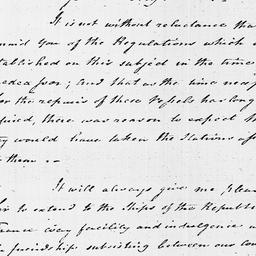 It is not without reluctance tha
you of the Regulations which
tablished on this subject in the time
; and that as the time
for the repairs of these Vessels has long
, there was reason to expect th
would have taken the Stations
them —
It will always give me, plea
to extend to the Ships of the Republi
rance every facility and indulgence
friendships subsisting between our cou